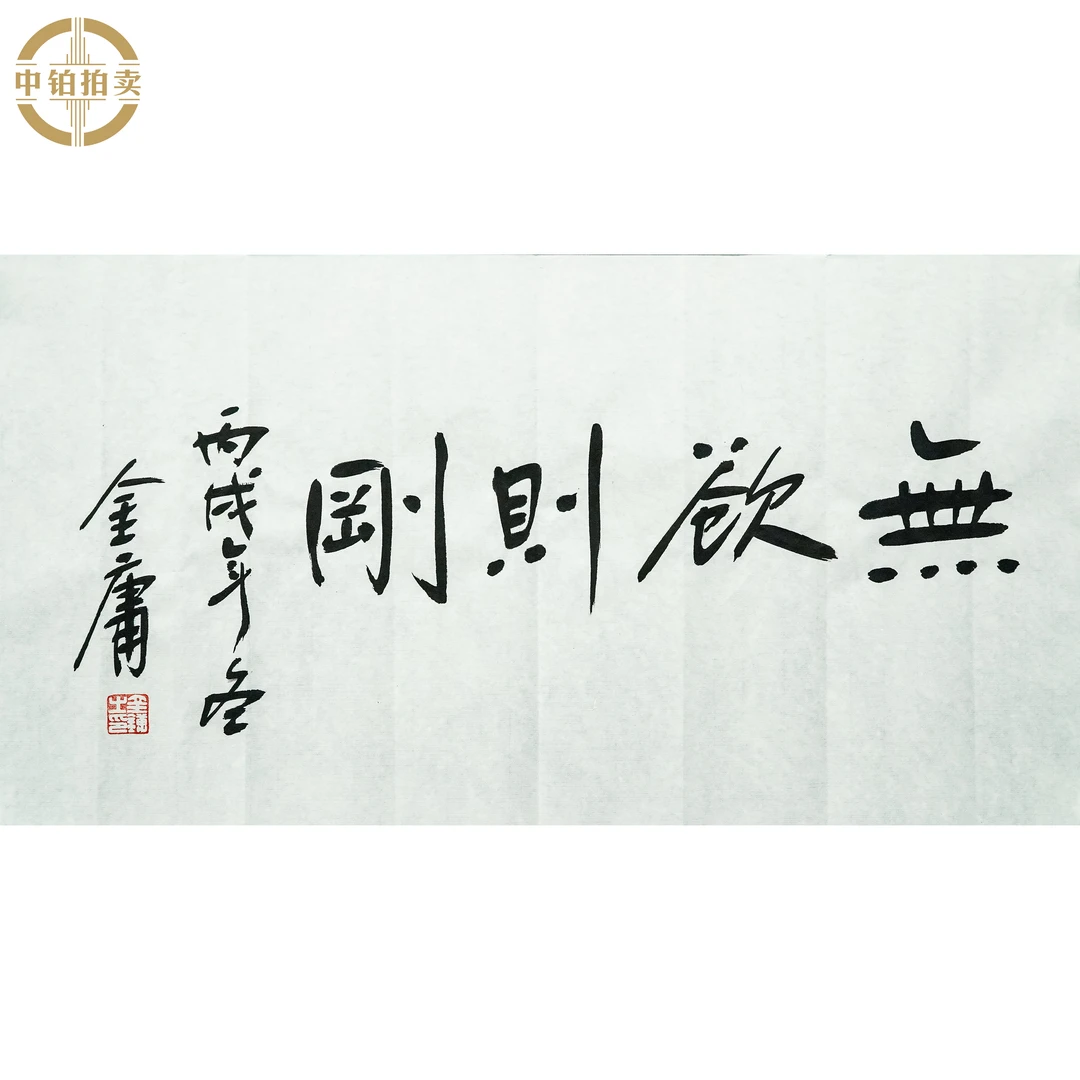 中铂拍卖
無欲則剛
丙戌年冬
金庸
金庸之印